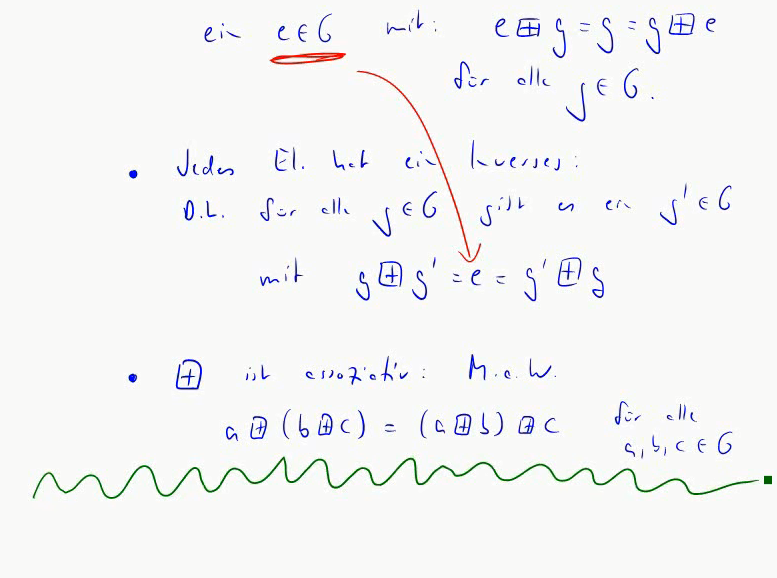 ein e ∈ G mit: e ⊞ g = g = g ⊞ e
für alle g ∈ G.
• Jedes El. hat ein Inverses:
D.h. für alle g ∈ G gibt es ein g' ∈ G
mit g ⊞ g' = e = g' ⊞ g
• ⊞ ist assoziativ: M.a.W.
a ⊞ (b ⊞ c) = (a ⊞ b) ⊞ c für alle
a, b, c ∈ G